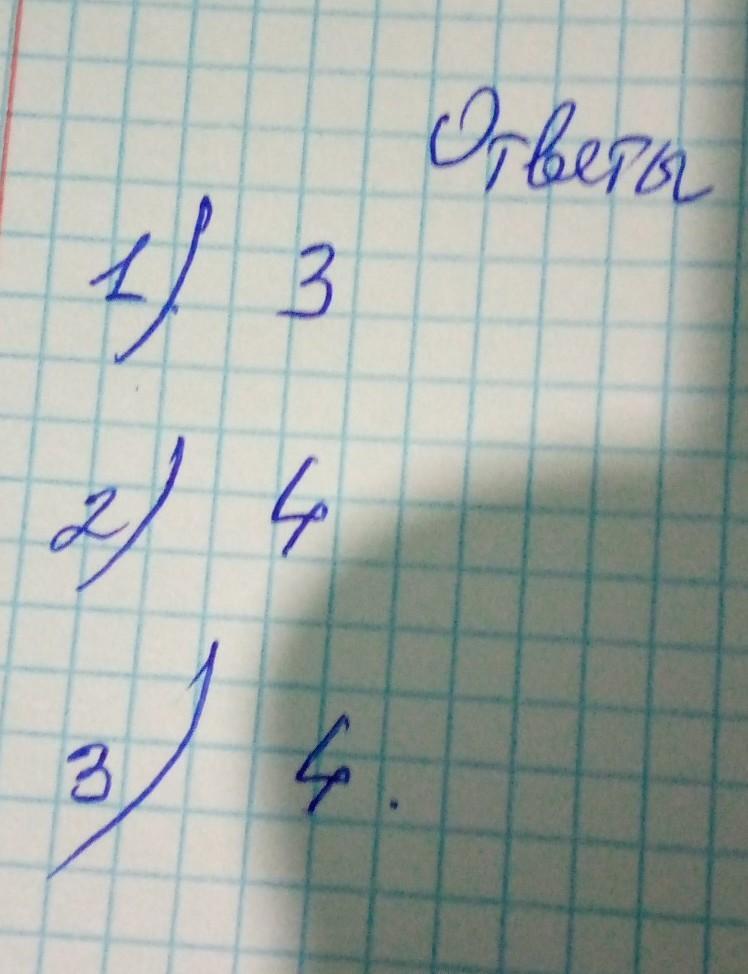 Ответы
1) 3
2) 4
3) 4.